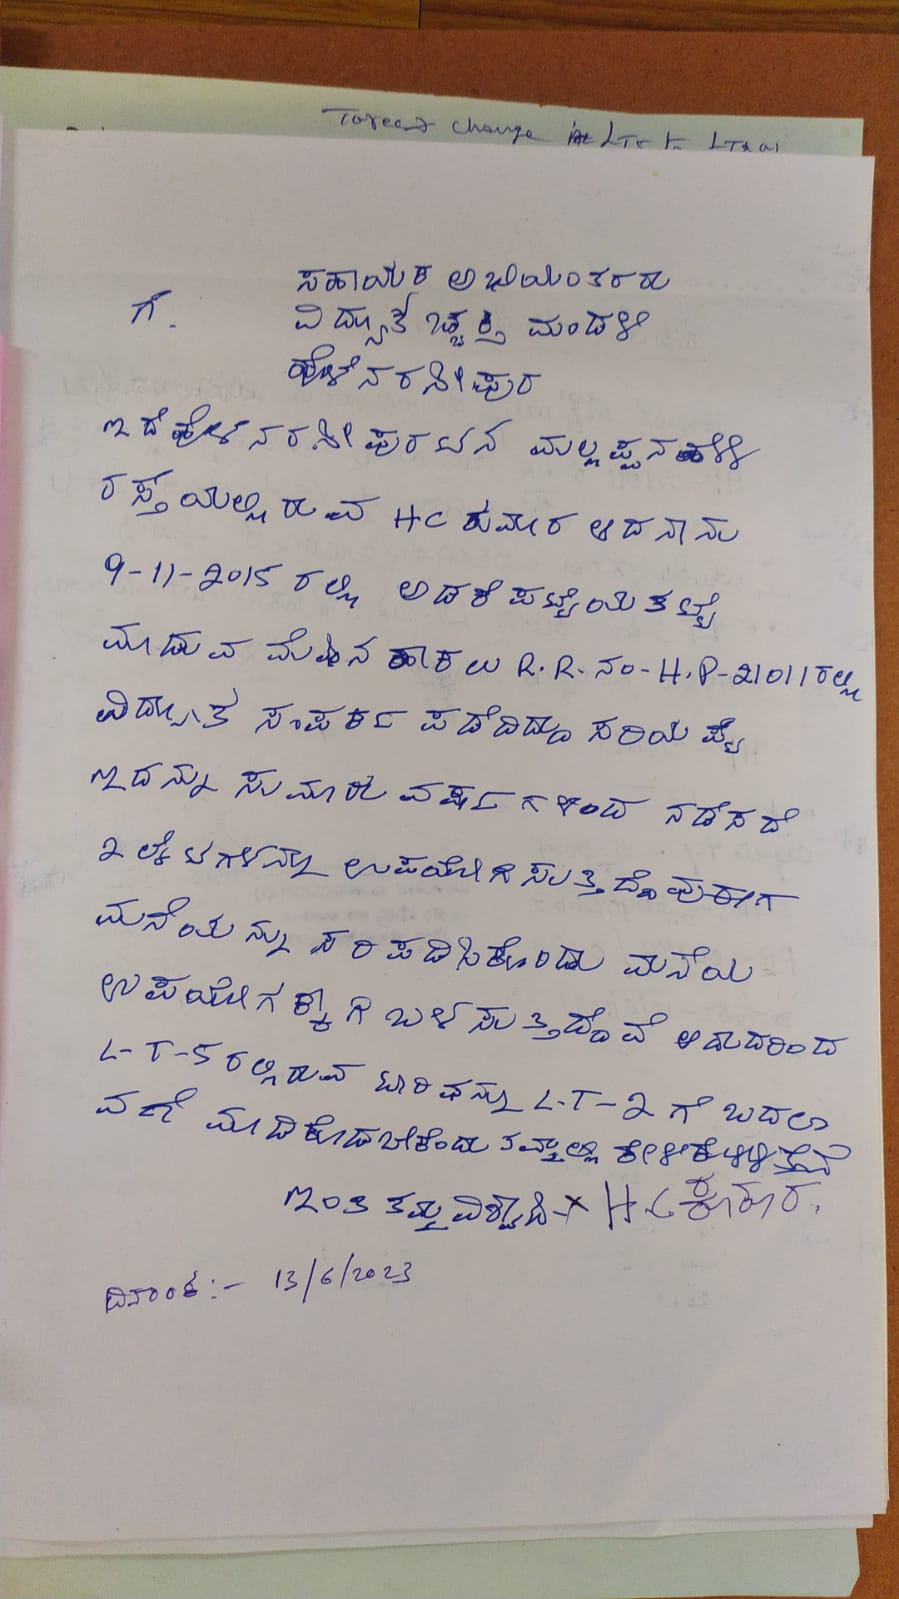 Tareed change in LT5 to LT2(a)
ಸಹಾಯಕ ಅಭಿಯಂತರರು
ಗೆ.
ವಿದ್ಯುತ್ ಮಂಡಳಿ
ಹೊಳೆನರಸೀಪುರ
ಇದೆ ಹೊಳೆನರಸೀಪುರಟನ ಮಲ್ಲಪ್ಪನಹಳ್ಳಿ
ರಸ್ತೆಯಲ್ಲಿರುವ HC ಕುಮಾರ ಆದ ನಾನು
9-11-2015 ರಲ್ಲಿ ಅಡಕೆ ಪಟ್ಟೆಯ ತಟ್ಟೆ
ಮಾಡುವ ಮೆಷಿನ ಹಾಕಲು R.R.ನಂ-H.P-21011 ರಲ್ಲಿ
ವಿದ್ಯುತ ಸಂಪರ್ಕ ಪಡೆದಿದ್ದು ಸರಿಯಷ್ಟೆ
ಇದನ್ನು ಸುಮಾರು ವರ್ಷಗಳಿಂದ ನಡೆಸದೆ
2 ಲೈಟಗಳನ್ನು ಉಪಯೋಗಿಸುತ್ತಿದ್ದೆವು ಈಗ
ಮನೆಯನ್ನು ಸರಿಪಡಿಸಿಕೊಂಡು ಮನೆಯ
ಉಪಯೋಗಕ್ಕಾಗಿ ಬಳಸುತ್ತಿದ್ದೆವೆ ಆದುದರಿಂದ
L-T-5 ರಲ್ಲಿರುವ ಟಾರಿಫನ್ನು L.T-2 ಗೆ ಬದಲಾ
ವಣೆ ಮಾಡಿಕೊಡಬೇಕೆಂದು ತಮ್ಮಲ್ಲಿ
ಇಂತಿ ತಮ್ಮ ವಿಶ್ವಾಸಿ x H.C ಕುಮಾರ.
ದಿನಾಂಕ:- 13/6/2023